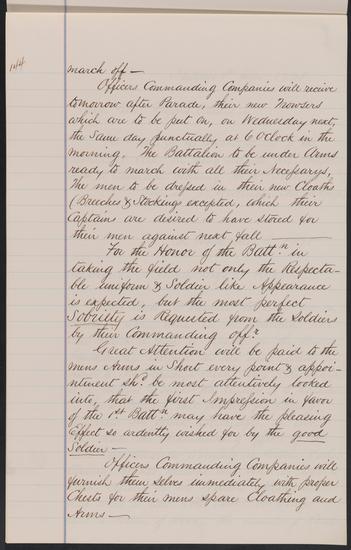 144
march off —
Officers Commanding Companies will receive
tomorrow after Parade, their new Trowsers
which are to be put on, on Wednesday next,
the Same day punctually at 6 OClock in the
morning. The Battalion to be under Arms
ready to march with all their Necessarys,
The men to be dressed in their new Cloaths
(Breeches & Stockings excepted, which their
Captains are desired to have stored for
their men against next fall —
For the Honor of the Battn. in
taking the field not only the Respecta-
ble uniform & Soldier like Appearance
is expected, but the most perfect
Sobriety is Requested from the Soldiers
by their Commanding offr.
Great Attention will be paid to the
mens Arms in Short every point & appoi-
ntment Shd. be most attentively looked
into, that the first Impression in favor
of the 1st Battn. may have the pleasing
Effect so ardently wished for by the good
Soldier —
Officers Commanding Companies will
furnish them selves immediately with proper
Chests for their mens spare Cloathing and
Arms —